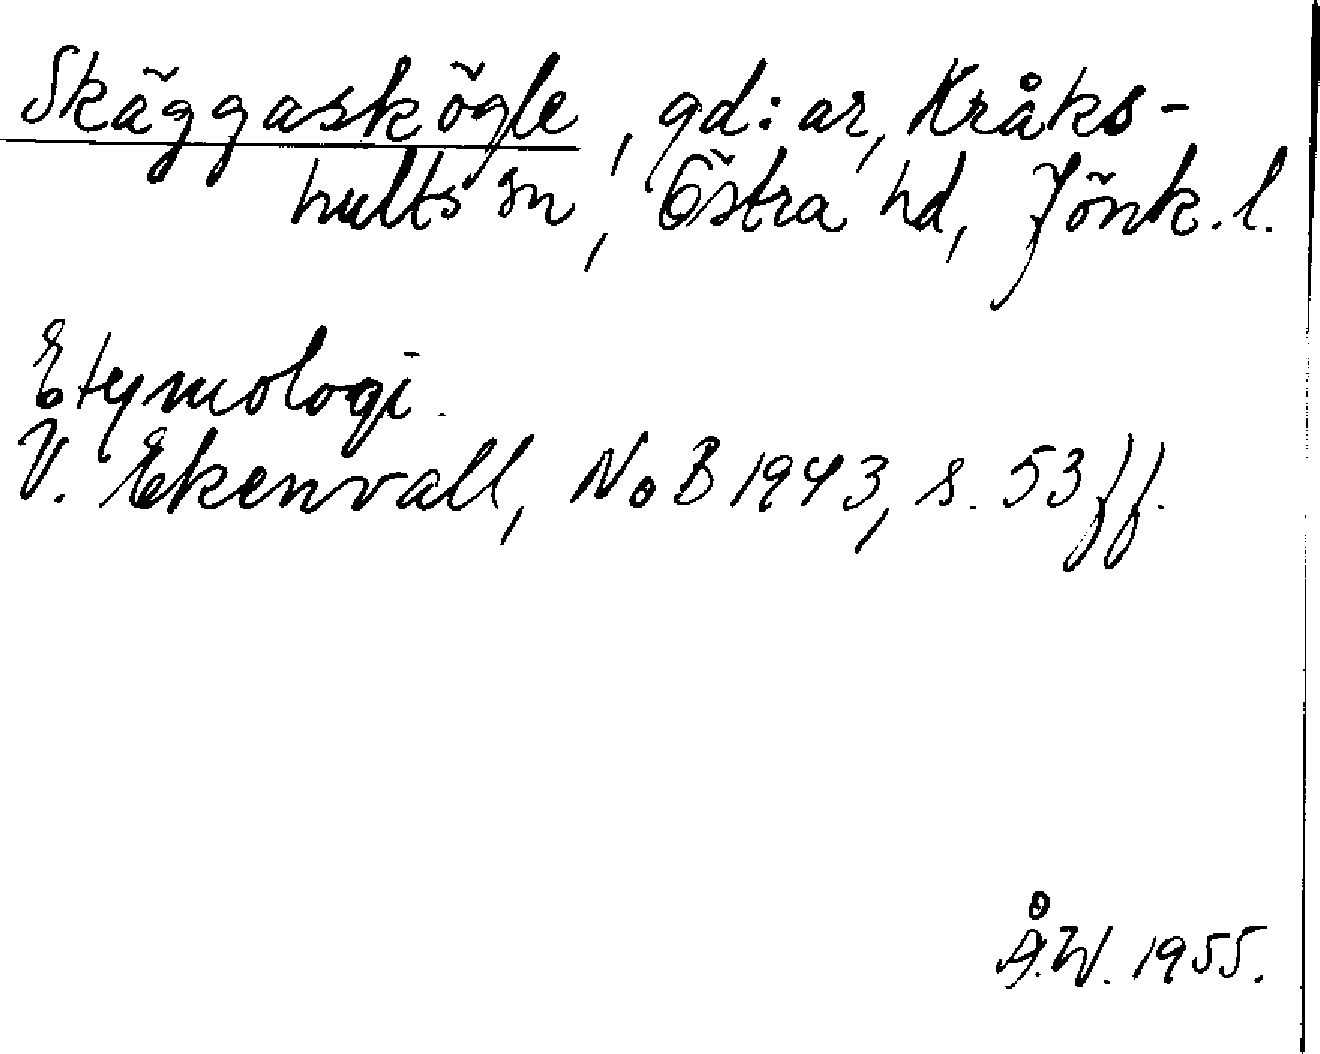 Skäggaskögle, gd:ar, Kråks-
hults sn, Östra hd, Jönk. l.
Etymologi.
V. Ekenvall, NoB 1943, s. 53 ff.
Å.W. 1955.